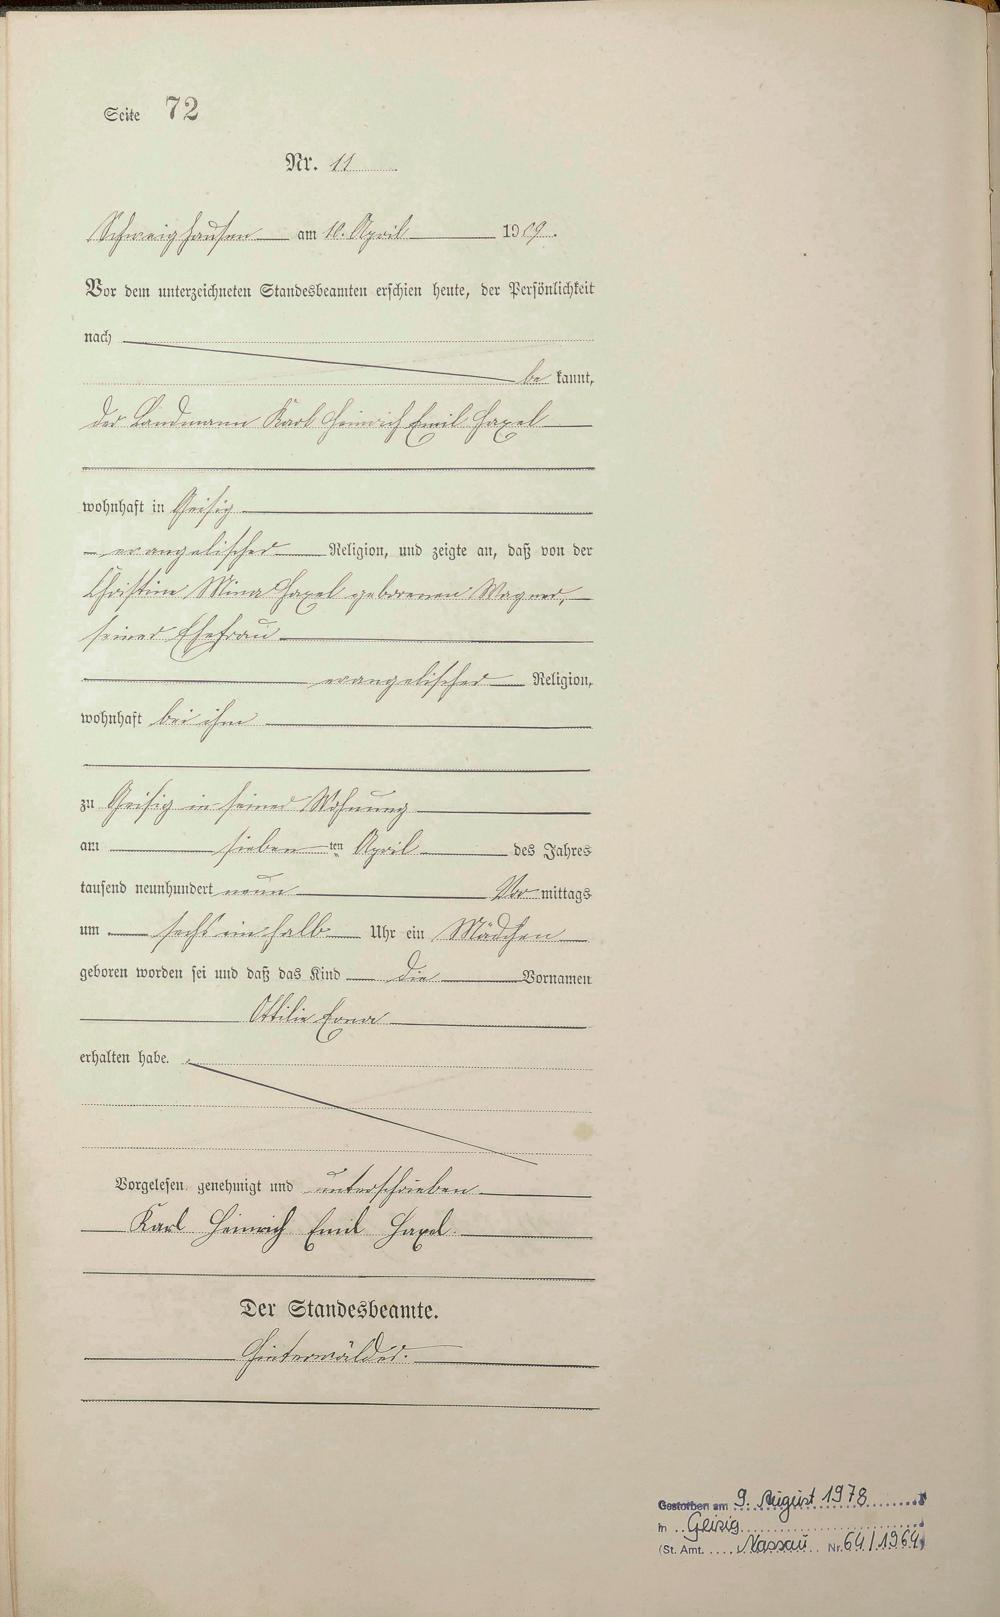 Seite 72
Nr. 11
Schweighausen am 10. April 1909.
Vor dem unterzeichneten Standesbeamten erschien heute, der Persönlichkeit
nach
be kannt,
der Landmann Karl Heinrich Emil Haxel
wohnhaft in Geisig
evangelischer Religion, und zeigte an, daß von der
Christine Mina Haxel geborenen Wagner,
seiner Ehefrau
evangelischer Religion,
wohnhaft bei ihm
zu Geisig in seiner Wohnung
am sieben ten April des Jahres
tausend neunhundert neun Vor mittags
um sechs ein halb Uhr ein Mädchen
geboren worden sei und daß das Kind die Vornamen
Ottilie Erna
erhalten habe.
Vorgelesen, genehmigt und unterschrieben
Karl Heinrich Emil Haxel
Der Standesbeamte.
Hinterwälder.
Gestorben am 9. August 1978
in Geisig
(St. Amt. Nassau Nr. 64/1964)